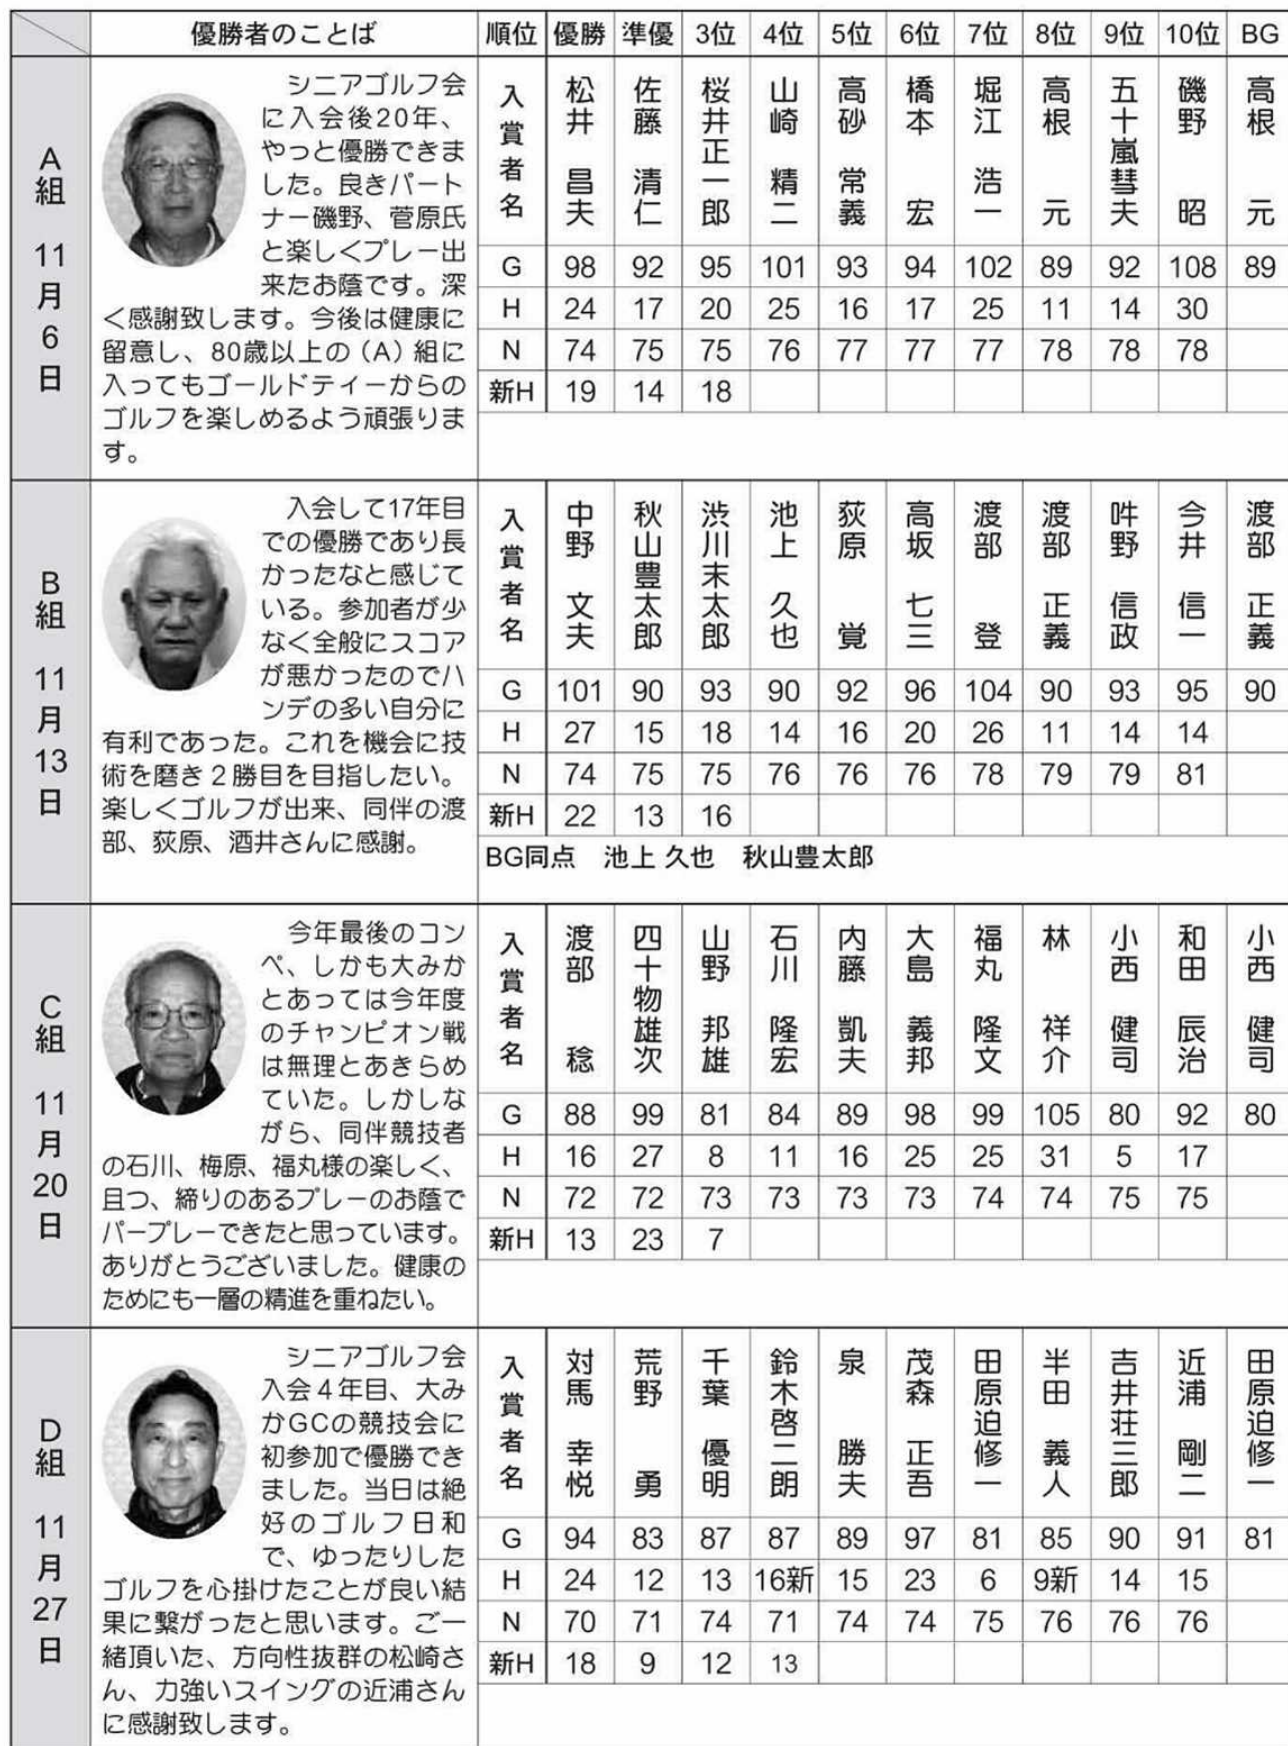 優勝者のことば 順位 優勝 準優 3位 4位 5位 6位 7位 8位 9位 10位 BG
A組 11月6日
シニアゴルフ会
に入会後20年、
やっと優勝できま
した。良きパート
ナー磯野、菅原氏
と楽しくプレー出
来たお蔭です。深
く感謝致します。今後は健康に
留意し、80歳以上の（A）組に
入ってもゴールドティーからの
ゴルフを楽しめるよう頑張りま
す。
入賞者名 松井 昌夫 佐藤 清仁 桜井正一郎 山崎 精二 高砂 常義 橋本 宏 堀江 浩一 高根 元 五十嵐彗夫 磯野 昭 高根 元
G 98 92 95 101 93 94 102 89 92 108 89
H 24 17 20 25 16 17 25 11 14 30
N 74 75 75 76 77 77 77 78 78 78
新H 19 14 18
B組 11月13日
入会して17年目
での優勝であり長
かったなと感じて
いる。参加者が少
なく全般にスコア
が悪かったのでハ
ンデの多い自分に
有利であった。これを機会に技
術を磨き２勝目を目指したい。
楽しくゴルフが出来、同伴の渡
部、荻原、酒井さんに感謝。
入賞者名 中野 文夫 秋山豊太郎 渋川末太郎 池上 久也 荻原 覚 高坂 七三 渡部 登 渡部 正義 吽野 信政 今井 信一 渡部 正義
G 101 90 93 90 92 96 104 90 93 95 90
H 27 15 18 14 16 20 26 11 14 14
N 74 75 75 76 76 76 78 79 79 81
新H 22 13 16
BG同点 池上 久也 秋山豊太郎
C組 11月20日
今年最後のコン
ペ、しかも大みか
とあっては今年度
のチャンピオン戦
は無理とあきらめ
ていた。しかしな
がら、同伴競技者
の石川、梅原、福丸様の楽しく、
且つ、締りのあるプレーのお蔭で
パープレーできたと思っています。
ありがとうございました。健康の
ためにも一層の精進を重ねたい。
入賞者名 渡部 稔 四十物雄次 山野 邦雄 石川 隆宏 内藤 凱夫 大島 義邦 福丸 隆文 林 祥介 小西 健司 和田 辰治 小西 健司
G 88 99 81 84 89 98 99 105 80 92 80
H 16 27 8 11 16 25 25 31 5 17
N 72 72 73 73 73 73 74 74 75 75
新H 13 23 7
D組 11月27日
シニアゴルフ会
入会４年目、大み
かGCの競技会に
初参加で優勝でき
ました。当日は絶
好のゴルフ日和
で、ゆったりした
ゴルフを心掛けたことが良い結
果に繋がったと思います。ご一
緒頂いた、方向性抜群の松崎さ
ん、力強いスイングの近浦さん
に感謝致します。
入賞者名 対馬 幸悦 荒野 勇 千葉 優明 鈴木啓二朗 泉 勝夫 茂森 正吾 田原迫修一 半田 義人 吉井荘三郎 近浦 剛二 田原迫修一
G 94 83 87 87 89 97 81 85 90 91 81
H 24 12 13 16新 15 23 6 9新 14 15
N 70 71 74 71 74 74 75 76 76 76
新H 18 9 12 13